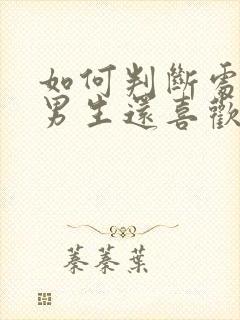 如何判斷需
男生還喜歡
蓁蓁葉